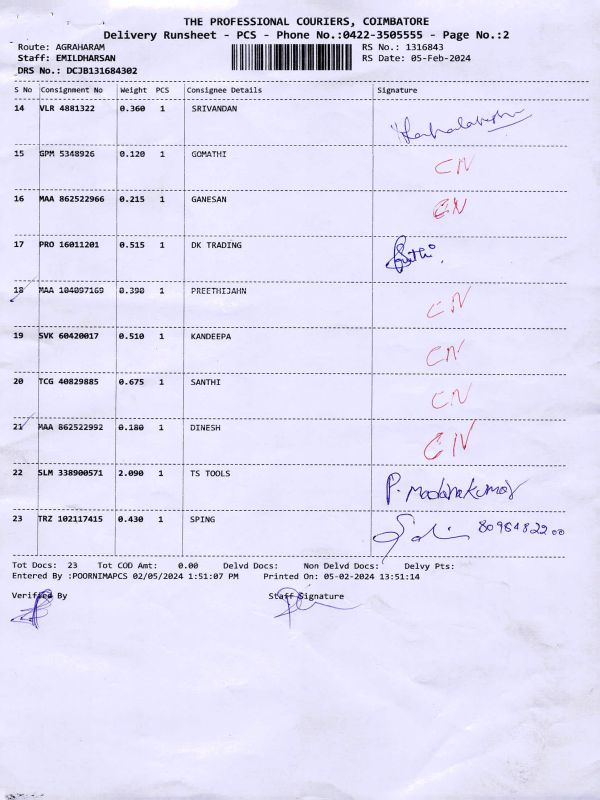 THE PROFESSIONAL COURIERS, COIMBATORE
Delivery Runsheet - PCS - Phone No.:0422-3505555 - Page No.:2
Route: AGRAHARAM
RS No.: 1316843
Staff: EMILDHARSAN
RS Date: 05-Feb-2024
DRS No.: DCJB131684302
S No Consignment No Weight PCS Consignee Details Signature
14 VLR 4881322 0.360 1 SRIVANDAN
15 GPM 5348926 0.120 1 GOMATHI CN
16 MAA 862522966 0.215 1 GANESAN CN
17 PRO 16011201 0.515 1 DK TRADING
18 MAA 104097169 0.390 1 PREETHIJAHN CN
19 SVK 60420017 0.510 1 KANDEEPA CN
20 TCG 40829885 0.675 1 SANTHI CN
21 MAA 862522992 0.180 1 DINESH CN
22 SLM 338900571 2.090 1 TS TOOLS P. Madanakumar
23 TRZ 102117415 0.430 1 SPING
Tot Docs: 23 Tot COD Amt: 0.00 Delvd Docs: Non Delvd Docs: Delvy Pts:
Entered By :POORNIMAPCS 02/05/2024 1:51:07 PM Printed On: 05-02-2024 13:51:14
Verified By Staff Signature